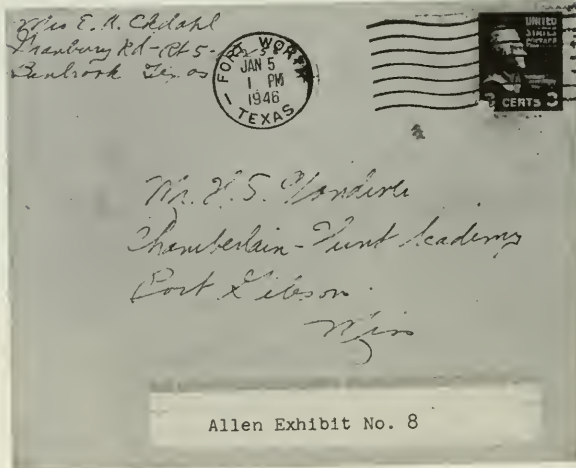 Mrs E. A. Ekdahl
Granbury Rd - Rt 5 -
Benbrook Texas
FORT WORTH
JAN 5
1 PM
1946
TEXAS
UNITED
STATES
POSTAGE
3 CENTS 3
Mr. V. S.
Chamberlain-Hunt Academy
Port Gibson.
Miss
Allen Exhibit No. 8